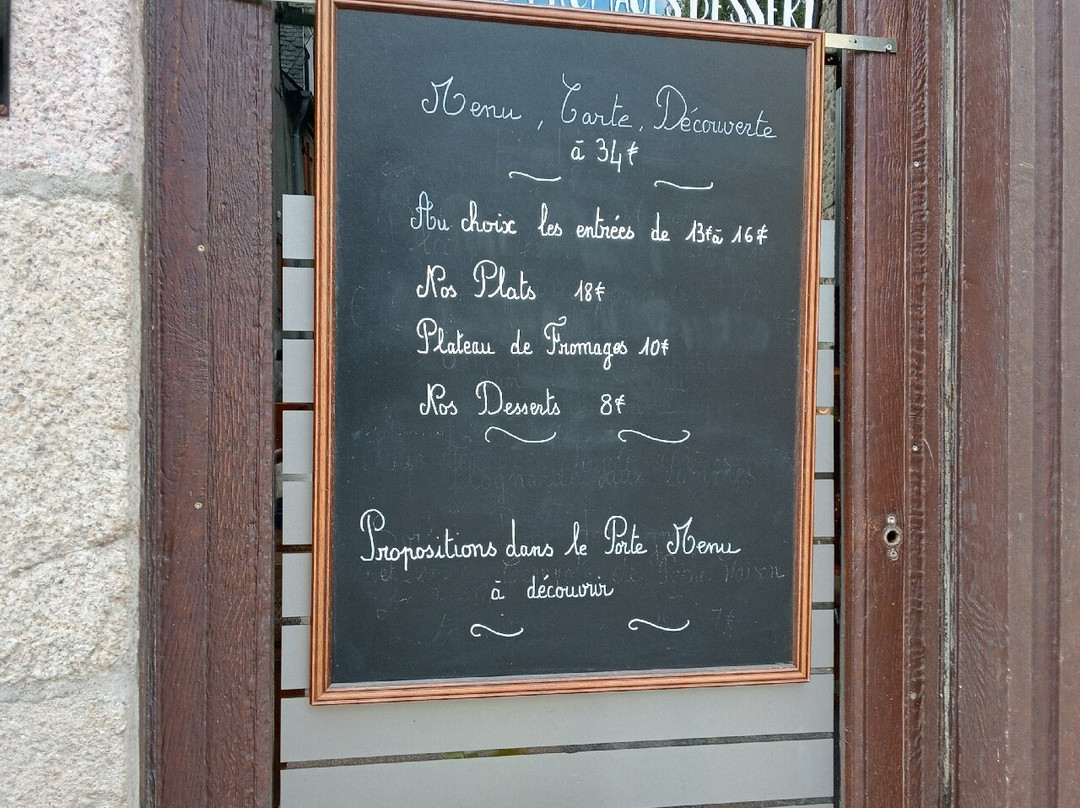 DESSERT
Menu, Carte, Découverte
à 34€
Au choix les entrées de 13€ à 16€
Nos Plats 18€
Plateau de Fromages 10€
Nos Desserts 8€
Propositions dans le Porte Menu
à découvrir